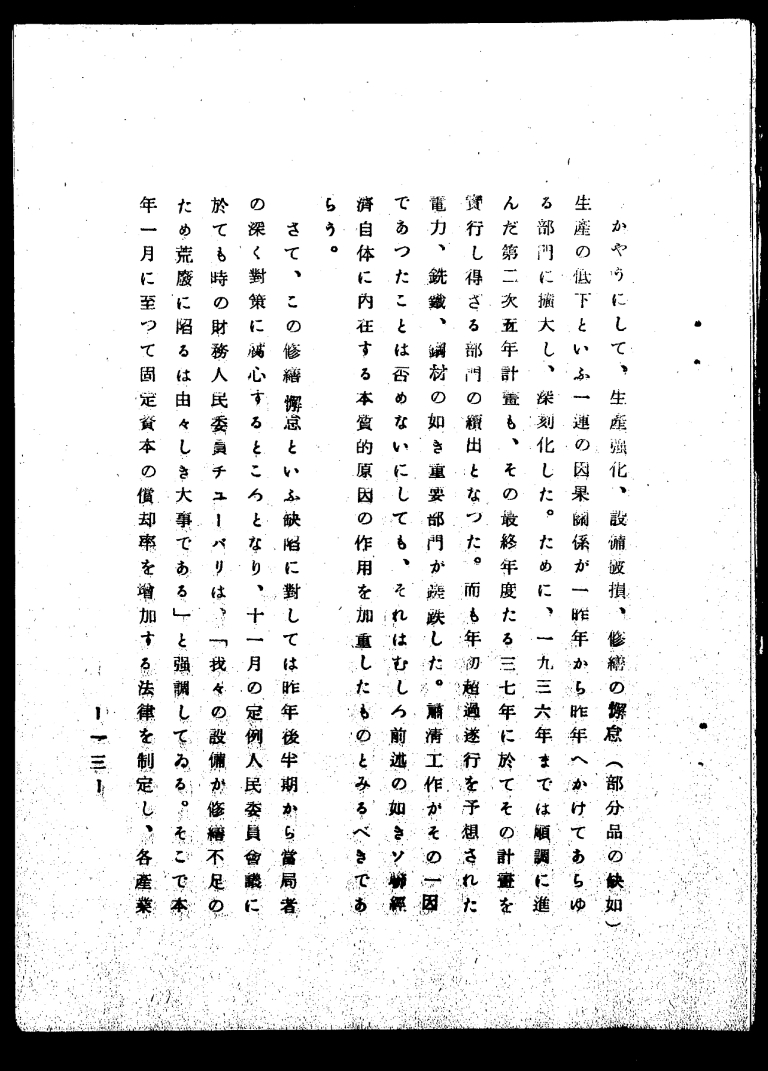 かやうにして、生產强化、設備破損、修繕の懈怠（部分品の缺如）
生產の低下といふ一連の因果關係が一昨年から昨年へかけてあらゆ
る部門に擴大し、深刻化した。ために、一九三六年までは順調に進
んだ第二次五年計畫も、その最終年度たる三七年に於てその計畫を
實行し得ざる部門の續出となつた。而も年初超過遂行を予想された
電力、銑鐵、鋼材の如き重要部門が蹉跌した。肅清工作がその一因
であつたことは否めないにしても、それはむしろ前述の如きソ聯經
濟自体に內在する本質的原因の作用を加重したものとみるべきであ
らう。
さて、この修繕懈怠といふ缺陷に對しては昨年後半期から當局者
の深く對策に腐心するところとなり、十一月の定例人民委員會議に
於ても時の財務人民委員チユーバリは、「我々の設備が修繕不足の
ため荒廢に陷るは由々しき大事である」と强調してゐる。そこで本
年一月に至つて固定資本の償却率を增加する法律を制定し、各產業
ー一三ー